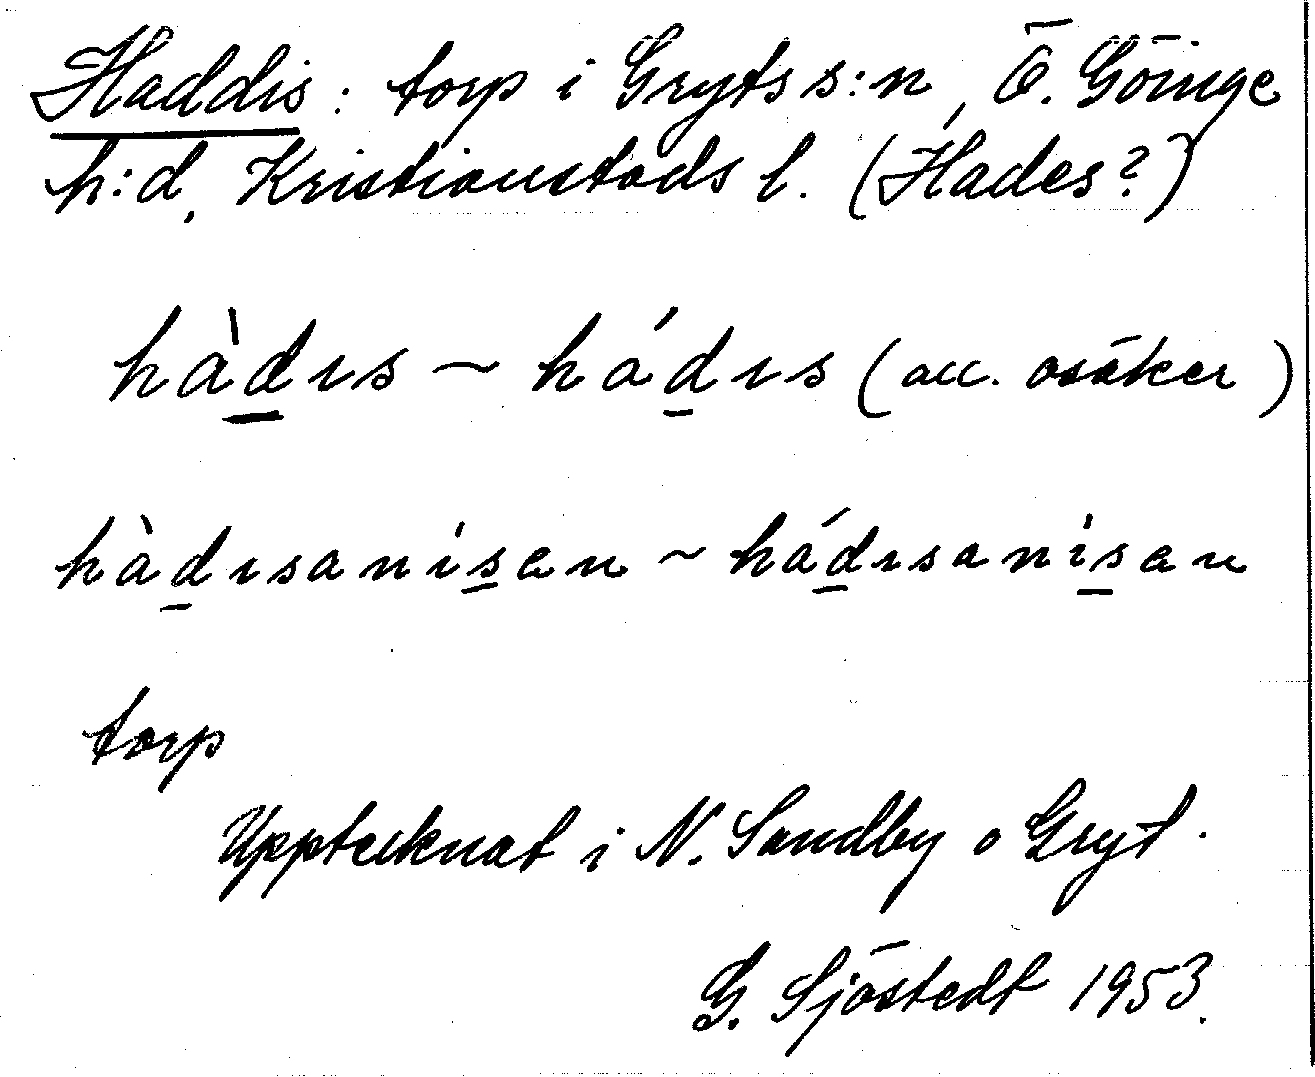 Haddis: torp i Gryts s:n, Ö. Göinge
h:d, Kristianstads l. (Hades?)
hàdıs ~ hádıs (acc. osäker)
hàdısanísen ~ hádısanísen
torp
Upptecknat i N. Sandby o Gryt.
G. Sjöstedt 1953.